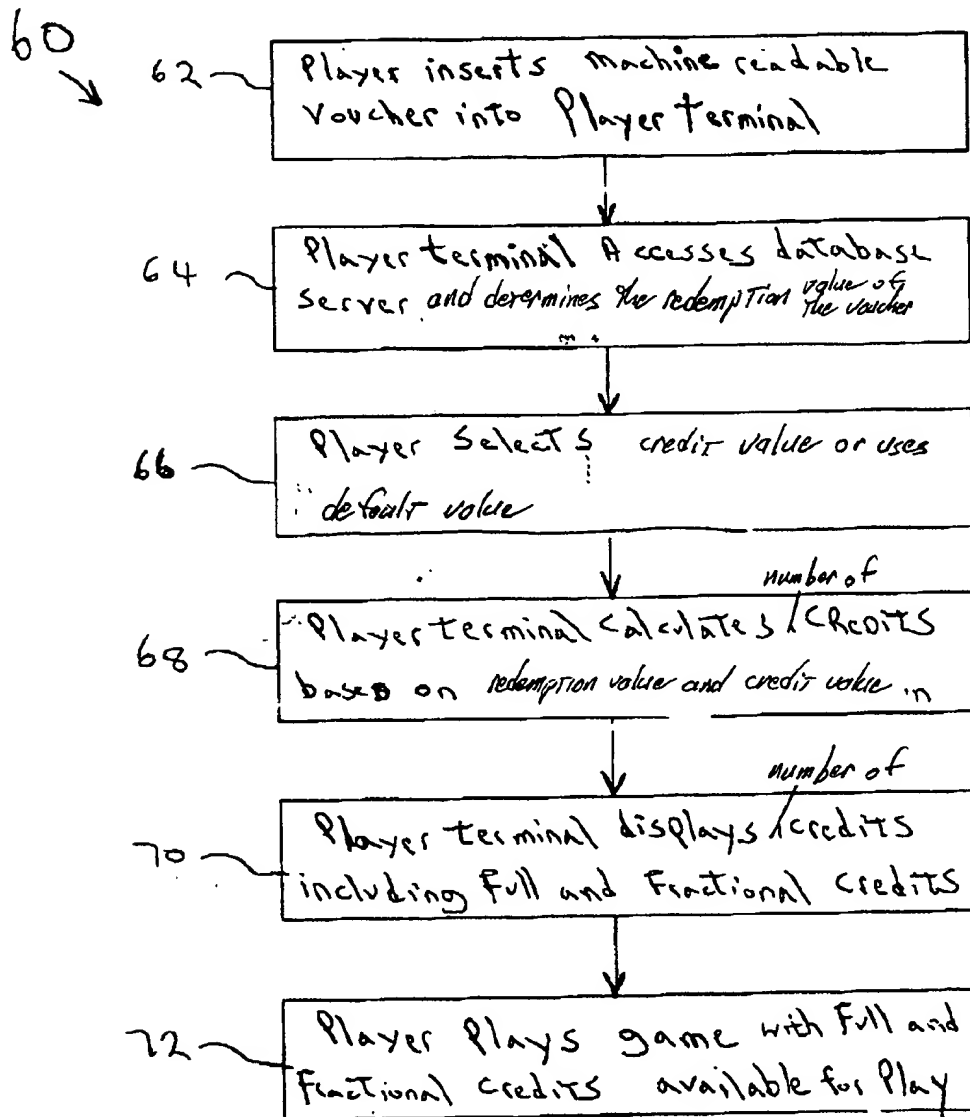 60
62
Player inserts machine readable
voucher into Player terminal
64
Player terminal Accesses database
server and determines the redemption value of
the voucher
66
Player Selects credit value or uses
default value
68
number of
Player terminal calculates credits
based on redemption value and credit value
70
number of
Player terminal displays credits
including Full and Fractional credits
72
Player Plays game with Full and
Fractional credits available for Play